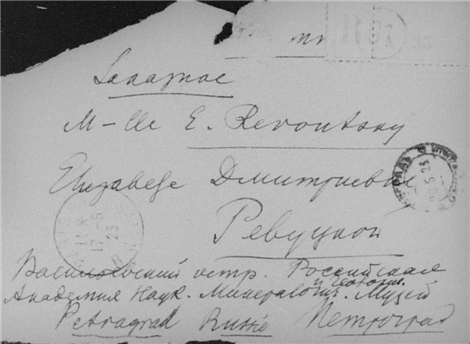 Заказное
M-lle E. Revoutsky
Елизавете Дмитриевне
Ревуцкой
Васильевский остр. Российская
Академия Наук. Минералог. Музей
и Геологич.
Petragrad Russie Петроград